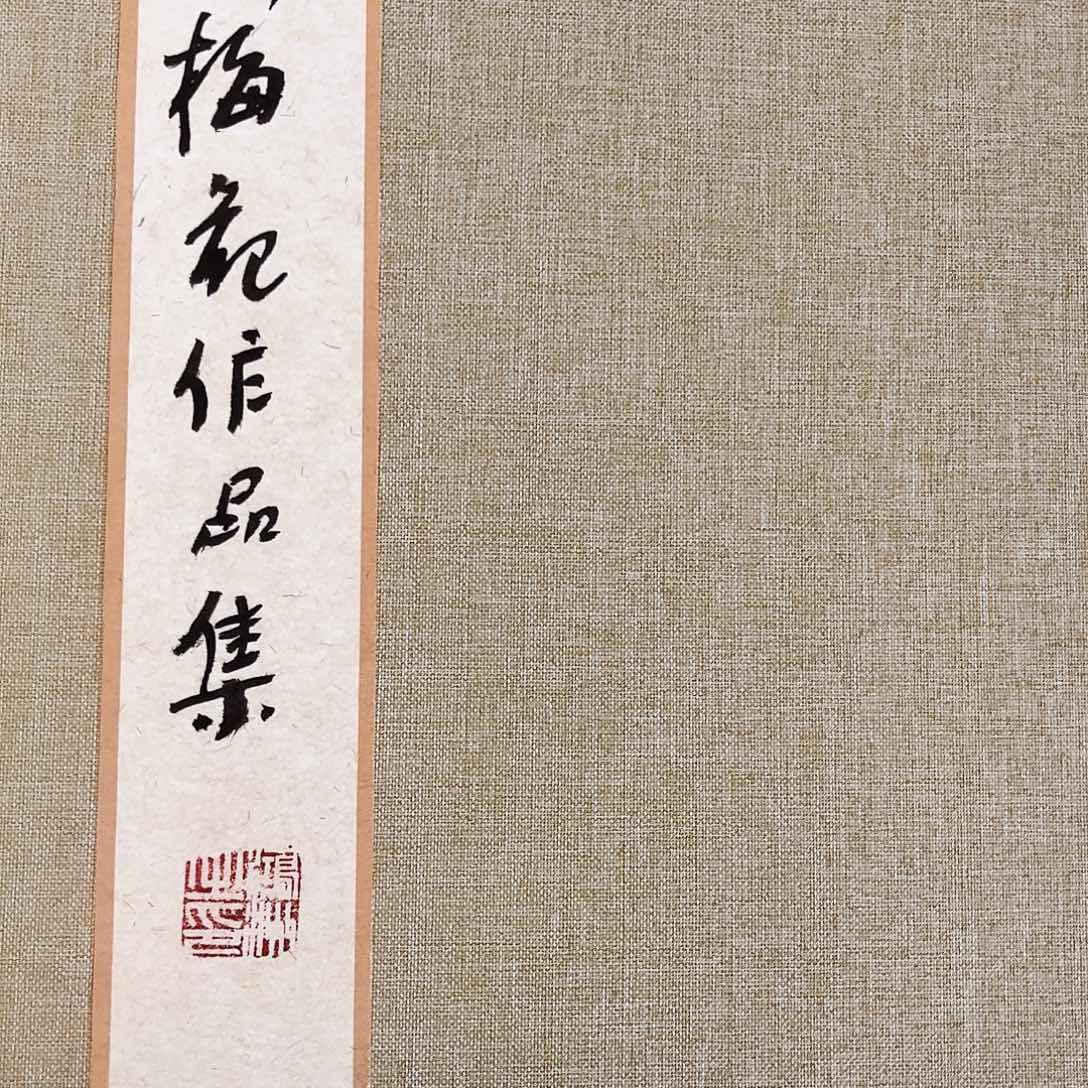 梅苑作品集